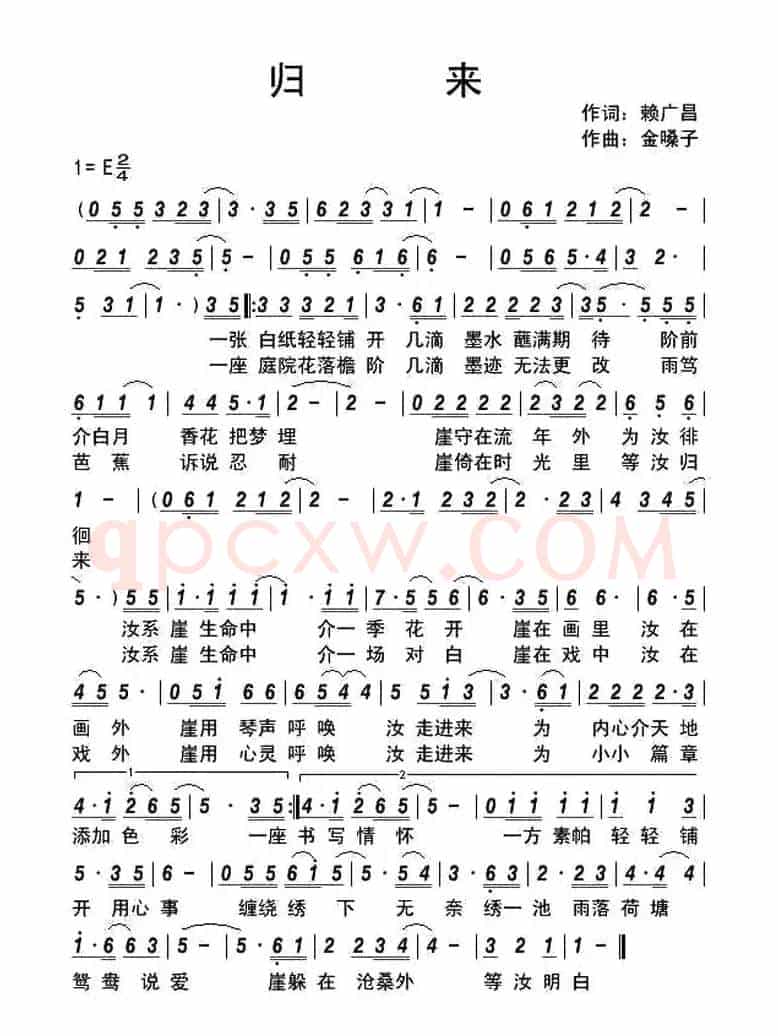 归 来
作词：赖广昌
作曲：金嗓子
1=E 2/4
(0 5 5 3 2 3 | 3· 3 5 | 6 2 3 3 1 | 1 - | 0 6 1 2 1 2 | 2 - |
0 2 1 2 3 5 | 5 - | 0 5 5 6 1 6 | 6 - | 0 5 6 5·4 | 3 2· |
5 3 1 | 1· ) 3 5 ‖: 3 3 3 2 1 | 3· 6 1 | 2 2 2 2 3 | 3 5· 5 5 5 |
一张 白纸轻轻铺 开 几滴 墨水 蘸满期 待 阶前
一座 庭院花落檐 阶 几滴 墨迹 无法更 改 雨笃
6 1 1 1 | 4 4 5·1 | 2 - | 2 - | 0 2 2 2 2 | 2 3 2 2 | 6 5 6 |
介白月 香花 把梦 埋 崖守在流 年外 为汝徘
芭蕉 诉说 忍 耐 崖倚在时 光里 等汝归
1 - | (0 6 1 2 1 2 | 2 - | 2·1 2 3 2 | 2·3 5 6 | 4 3 4 5 |
徊
来
qpcxw.COM
5· ) 5 5 | 1·1 1 1 1 | 1· 1 1 | 7·5 5 6 | 6· 3 5 | 6 6· | 6· 5 |
汝系 崖 生命中 介一 季 花 开 崖在 画 里 汝 在
汝系 崖 生命中 介一 场 对 白 崖在 戏 中 汝 在
4 5 5· | 0 5 1 6 6 | 6 5 4 4 | 5 5 1 3 | 3· 6 1 | 2 2 2 2·3 |
画 外 崖用 琴声 呼 唤 汝 走进来 为 内心介天 地
戏 外 崖用 心灵 呼 唤 汝 走进来 为 小小 篇 章
1 2
4·1 2 6 5 | 5· 3 5 :‖ 4·1 2 6 5 | 5 - | 0 1 1 1 1 | 1 1 3 |
添加 色 彩 一座 书 写 情 怀 一方 素帕 轻 轻 铺
5· 3 5 | 6 - | 0 5 5 6 1 5 | 5· 5 4 | 3 0 5 | 2·1 2 3 | 4·4 4 |
开 用心 事 缠绕 绣 下 无 奈 绣一 池 雨落 荷 塘
1·6 6 3 | 5 - | 5· 6 1 | 2 3 4 4 | 4 - | 3 2 1 | 1 - ‖
鸳 鸯 说 爱 崖躲 在 沧桑外 等 汝明 白